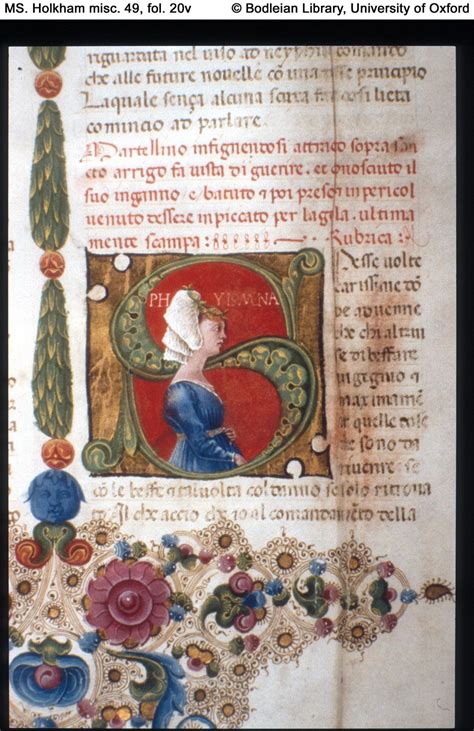 MS. Holkham misc. 49, fol. 20v © Bodleian Library, University of Oxford
riguardata nel viso ad neyphil comando
che alle future novelle con una desse principio
Laquale senza alcuna scusa far cosi lieta
comincio ad parlare.
Martellino infignentosi attracto sopra san
cto arrigo fa vista di guerire. et conosciuto il
suo inganno e batuto et poi preso in pericol
venuto dessere inpiccato per la gola. ultima
mente scampa: Rubrica:
PHYLOMENA
Pesse volte
carissime do
ne advenne
che chi altrui
se di beffare
ingegnio et
maximame
te quelle cose
re sono da
riverire se
co le beffe et talvolta col danno se solo ritrova
to. Il che accio che io al comandamento della